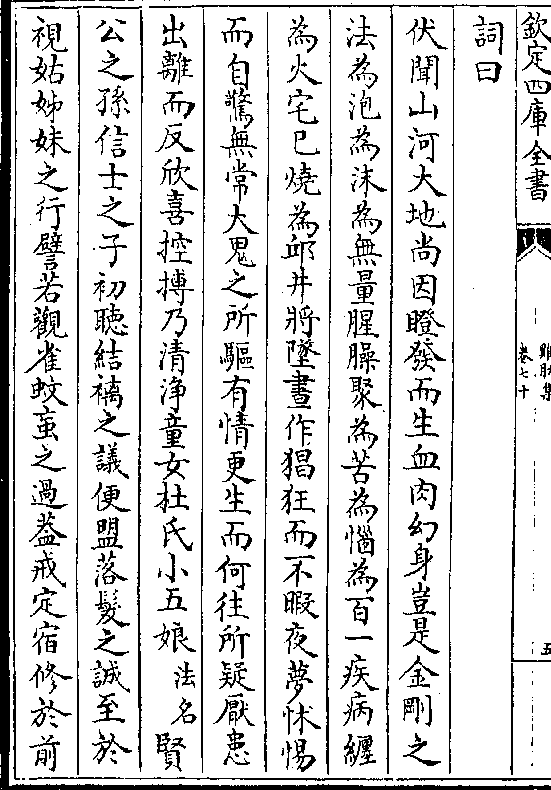 欽定四庫全書
雞肋集
卷七十
五
詞曰
伏聞山河大地尚因瞪發而生血肉幻身豈是金剛之
法為泡為沫為無量腥臊聚為苦為惱為百一疾病纏
為火宅已燒為邱井將墜晝作猖狂而不暇夜夢怵惕
而自驚無常大鬼之所驅有情更生而何往所疑厭患
出離而反欣喜控摶乃清淨童女杜氏小五娘法名賢
公之孫信士之子初聽結褵之議便盟落髮之誠至於
視姑姊妹之行譬若觀雀蚊䖟之過葢戒定宿修於前